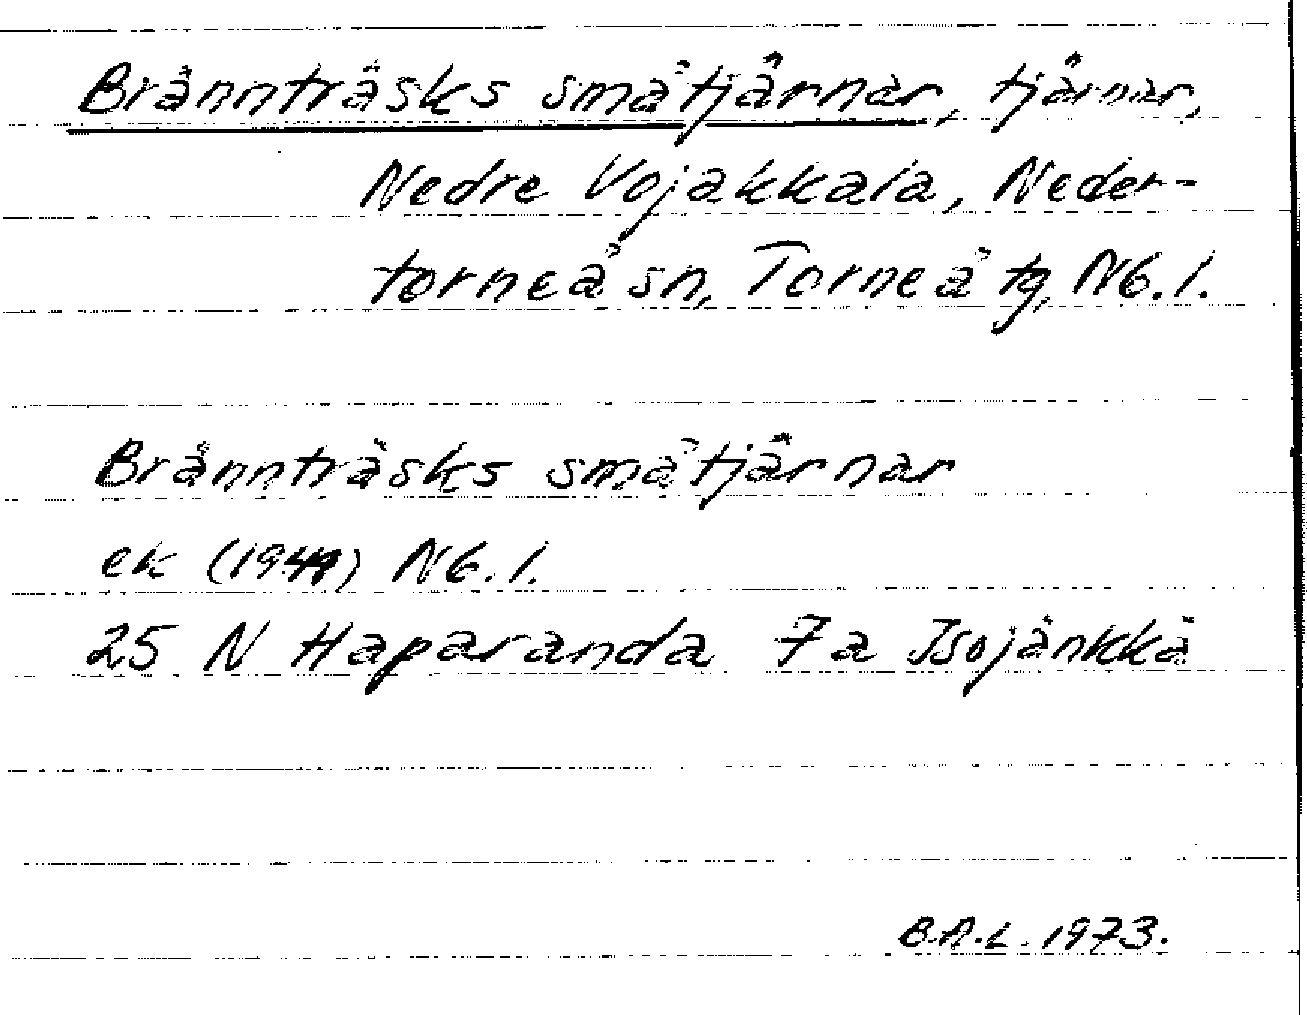 Brännträsks småtjärnar, tjärnar,
Nedre Vojakkala, Neder-
torneå sn, Torneå tg, Nb. l.
Brännträsks småtjärnar
ek (1949) Nb. l.
25 N Haparanda 7a Isojänkkä
B.A.L. 1973.